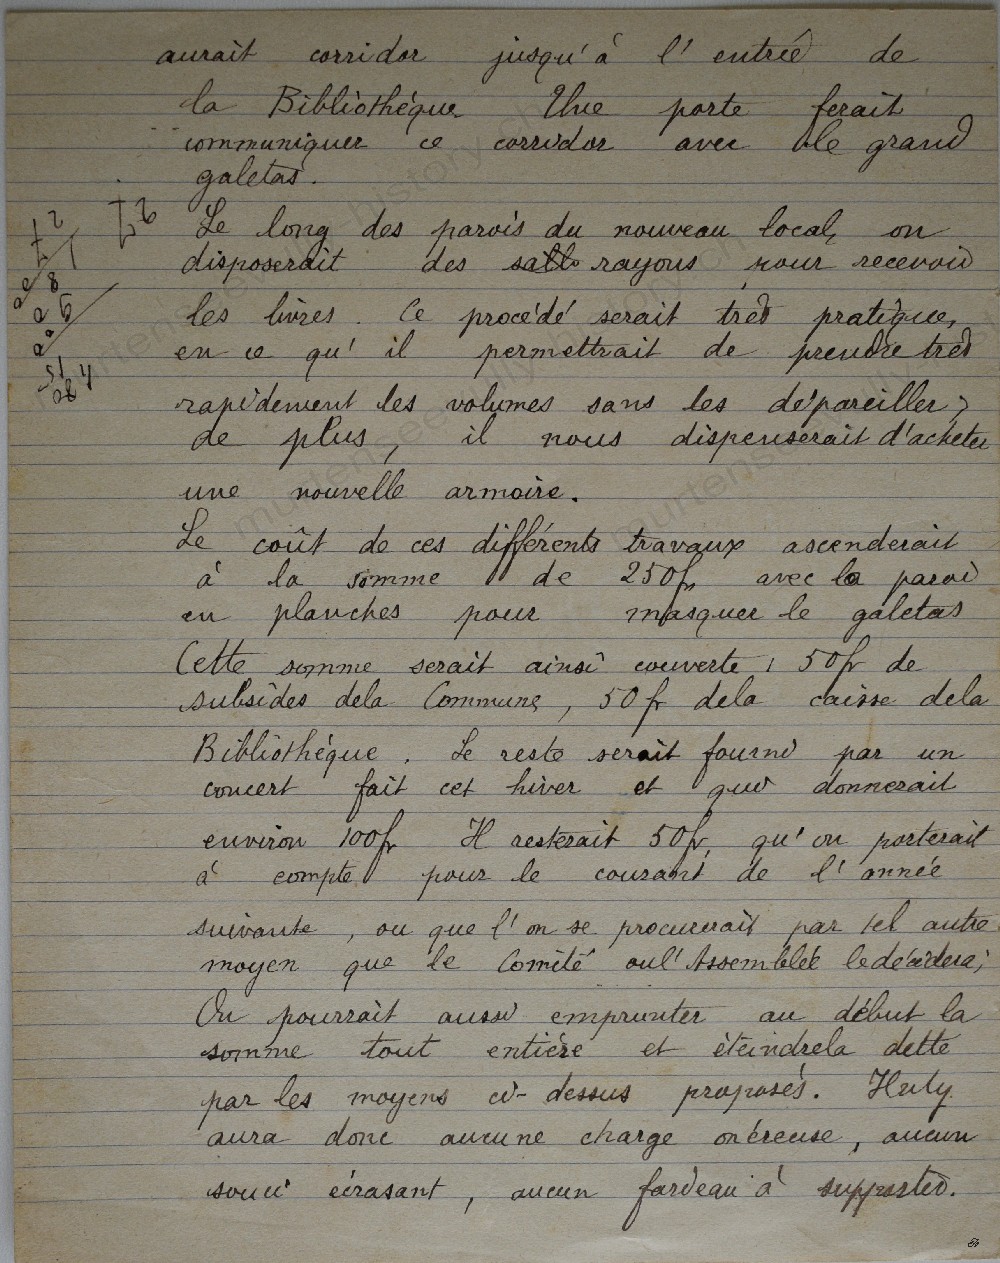 aurait corridor jusqu'à l'entrée de
la Bibliothèque Une porte ferait
communiquer ce corridor avec le grand
galetas.
Le long des parois du nouveau local, on
disposerait des rayons pour recevoir
les livres. Ce procédé serait très pratique,
en ce qu'il permettrait de prendre très
rapidement les volumes sans les dépareiller;
de plus, il nous dispenserait d'acheter
une nouvelle armoire.
Le coût de ces différents travaux ascenderait
à la somme de 250 fr, avec la paroi
en planches pour masquer le galetas
Cette somme serait ainsi couverte : 50 fr de
subsides de la Commune, 50 fr de la caisse de la
Bibliothèque. Le reste serait fourni par un
concert fait cet hiver et qui donnerait
environ 100 fr Il resterait 50 fr, qu'on porterait
à compte pour le courant de l'année
suivante, ou que l'on se procurerait par tel autre
moyen que le Comité ou l'Assemblée le décidera;
On pourrait aussi emprunter au début la
somme tout entière et éteindre la dette
par les moyens ci-dessus proposés. Il n'y
aura donc aucune charge onéreuse, aucun
souci écrasant, aucun fardeau à supporter.